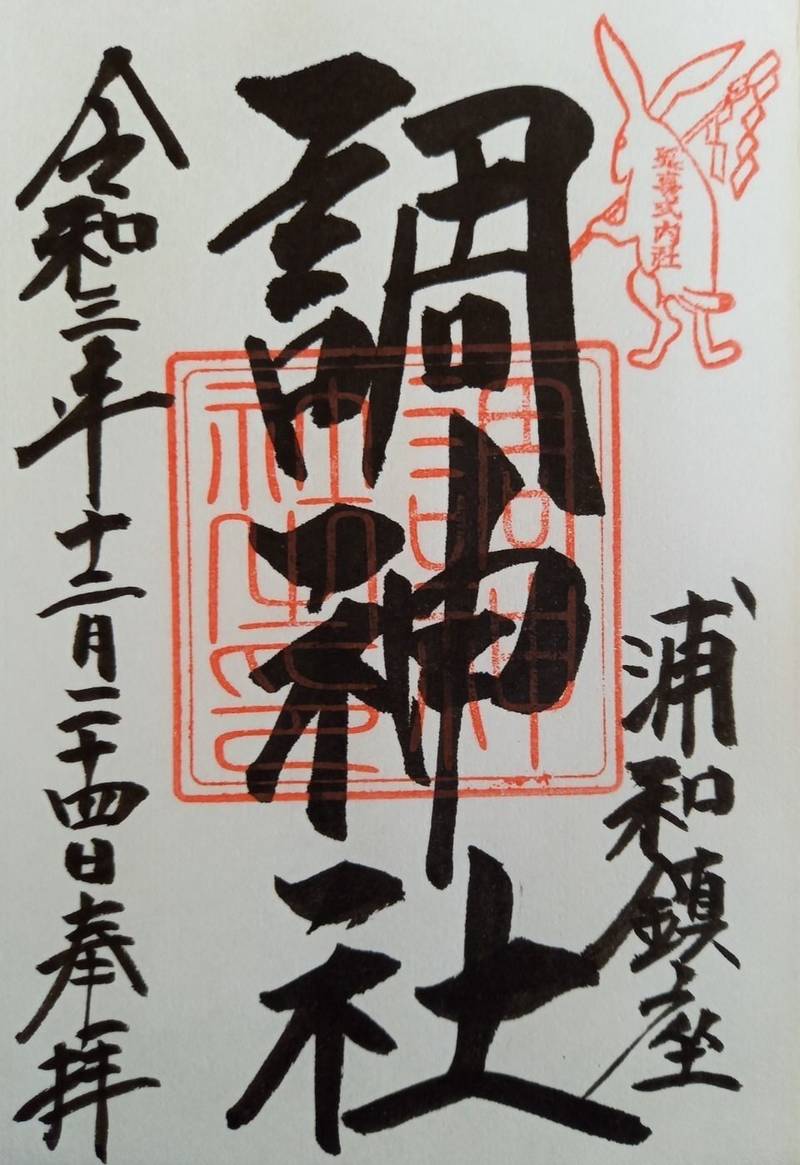 延喜式内社
浦和鎮座
調神社
調神
社之印
令和三年十二月二十四日奉拝